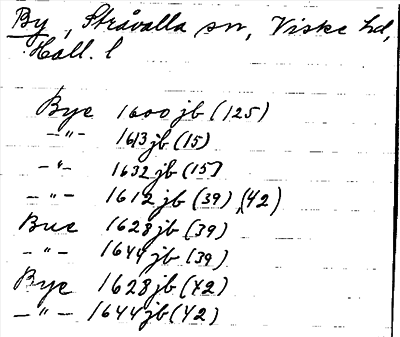 By, Stråvalla sn, Viske hd,
Hall. l
Bye 1600 jb (125)
–"– 1613 jb (15)
–"– 1632 jb (15)
–"– 1612 jb (39) (42)
Bue 1628 jb (39)
–"– 1644 jb (39)
Bye 1628 jb (42)
–"– 1644 jb (42)